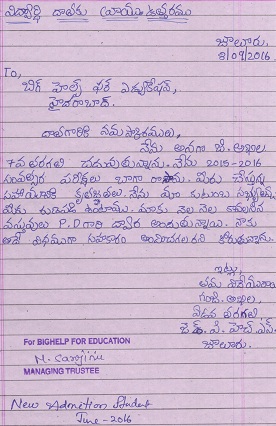 విద్యార్థి దాతకు వ్రాయు ఉత్తరము
జౌలూరు.
3/09/2016
To,
బిగ్ హెల్ప్ ఫర్ ఎడ్యుకేషన్,
హైదరాబాద్.
దాతగారికి నమస్కారములు,
నేను అనగా జి. అఖిల
7వ తరగతి చదువుతున్నాను. నేను 2015-2016
సంవత్సర పరీక్షలు బాగా రాసాను. మీరు చేస్తున్న
సహాయానికి కృతజ్ఞతలు. నేను మా కుటుంబ సభ్యులు
మీకు రుణపడి ఉంటాము. మాకు నెల నెల కావలసిన
వస్తువులు P.D గారి ద్వారా అందుతున్నాయి. నాకు
ఇదే విధముగా సహకారం అందించగలరని కోరుతున్నాను.
ఇట్లు,
తమ విధేయురాలు
గుంజి. అఖిల,
ఏడవ తరగతి
జె.డ్. పి. హెచ్.ఎస్.
జౌలూరు.
For BIGHELP FOR EDUCATION
N. Sarojini
MANAGING TRUSTEE
New Admition Student
June - 2016